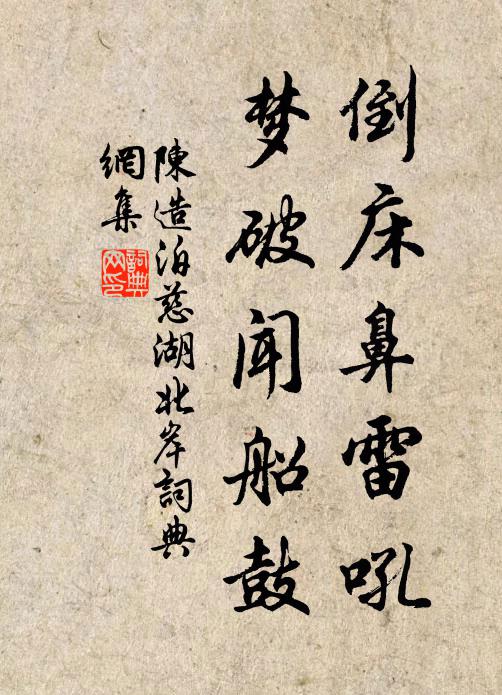 倒床鼻雷吼
梦破闻船鼓
陳造泊慈湖北岸詞典
網集
詞典
网印